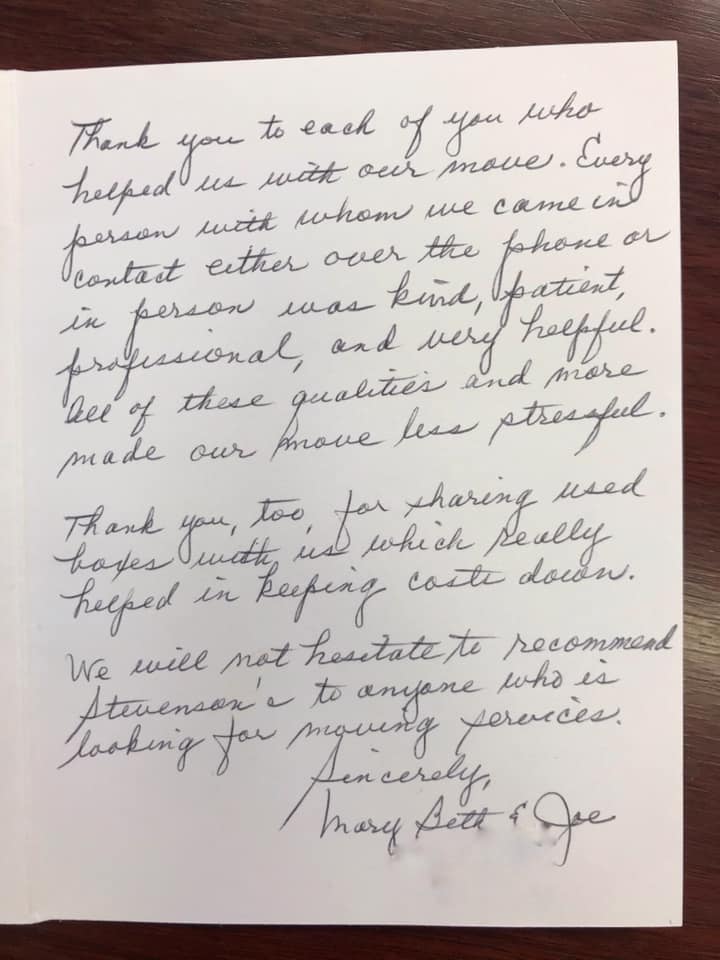 Thank you to each of you who
helped us with our move. Every
person with whom we came in
contact either over the phone or
in person was kind, patient,
professional, and very helpful.
All of these qualities and more
made our move less stressful.
Thank you, too, for sharing used
boxes with us which really
helped in keeping costs down.
We will not hesitate to recommend
Stevenson's to anyone who is
looking for moving services.
Sincerely,
Mary Beth & Joe